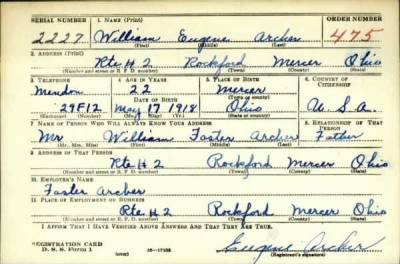 SERIAL NUMBER 1. NAME (Print) ORDER NUMBER
2227 William Eugene Archer 475
(First) (Middle) (Last)
2. ADDRESS (Print)
Rte # 2 Rockford Mercer Ohio
(Number and street or R. F. D. number) (Town) (County) (State)
3. TELEPHONE 4. AGE IN YEARS 5. PLACE OF BIRTH 6. COUNTRY OF CITIZENSHIP
Mendon 22 Mercer
DATE OF BIRTH (Town or county)
29F12 May 17 1918 Ohio U. S. A.
(Exchange) (Number) (Mo.) (Day) (Yr.) (State or country)
7. NAME OF PERSON WHO WILL ALWAYS KNOW YOUR ADDRESS 8. RELATIONSHIP OF THAT PERSON
Mr William Foster Archer Father
(Mr., Mrs., Miss) (First) (Middle) (Last)
9. ADDRESS OF THAT PERSON
Rte # 2 Rockford Mercer Ohio
(Number and street or R. F. D. number) (Town) (County) (State)
10. EMPLOYER'S NAME
Foster Archer
11. PLACE OF EMPLOYMENT OR BUSINESS
Rte # 2 Rockford Mercer Ohio
(Number and street or R. F. D. number) (Town) (County) (State)
I AFFIRM THAT I HAVE VERIFIED ABOVE ANSWERS AND THAT THEY ARE TRUE.
REGISTRATION CARD
D. S. S. Form 1 Eugene Archer
(Registrant's signature)